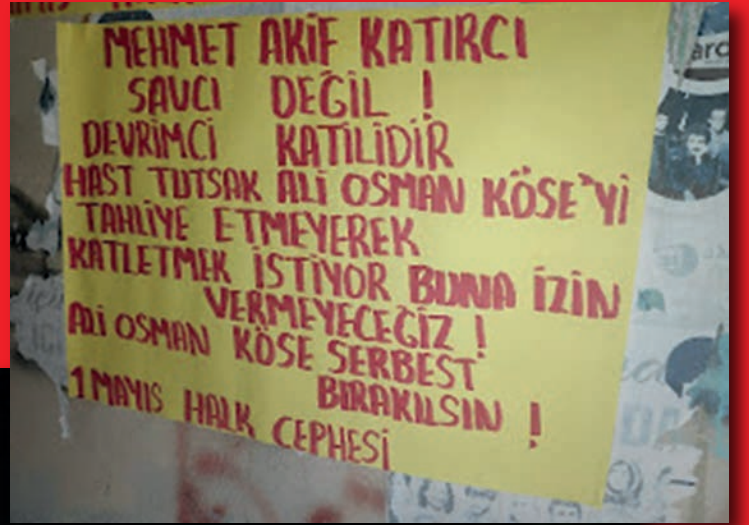 MEHMET AKİF KATIRCI
SAVCI DEĞİL !
DEVRİMCİ KATİLİDİR
HAST TUTSAK ALİ OSMAN KÖSE'Yİ
TAHLİYE ETMEYEREK
KATLETMEK İSTİYOR BUNA İZİN
VERMEYECEĞİZ !
ALİ OSMAN KÖSE SERBEST
BIRAKILSIN !
1 MAYIS HALK CEPHESİ